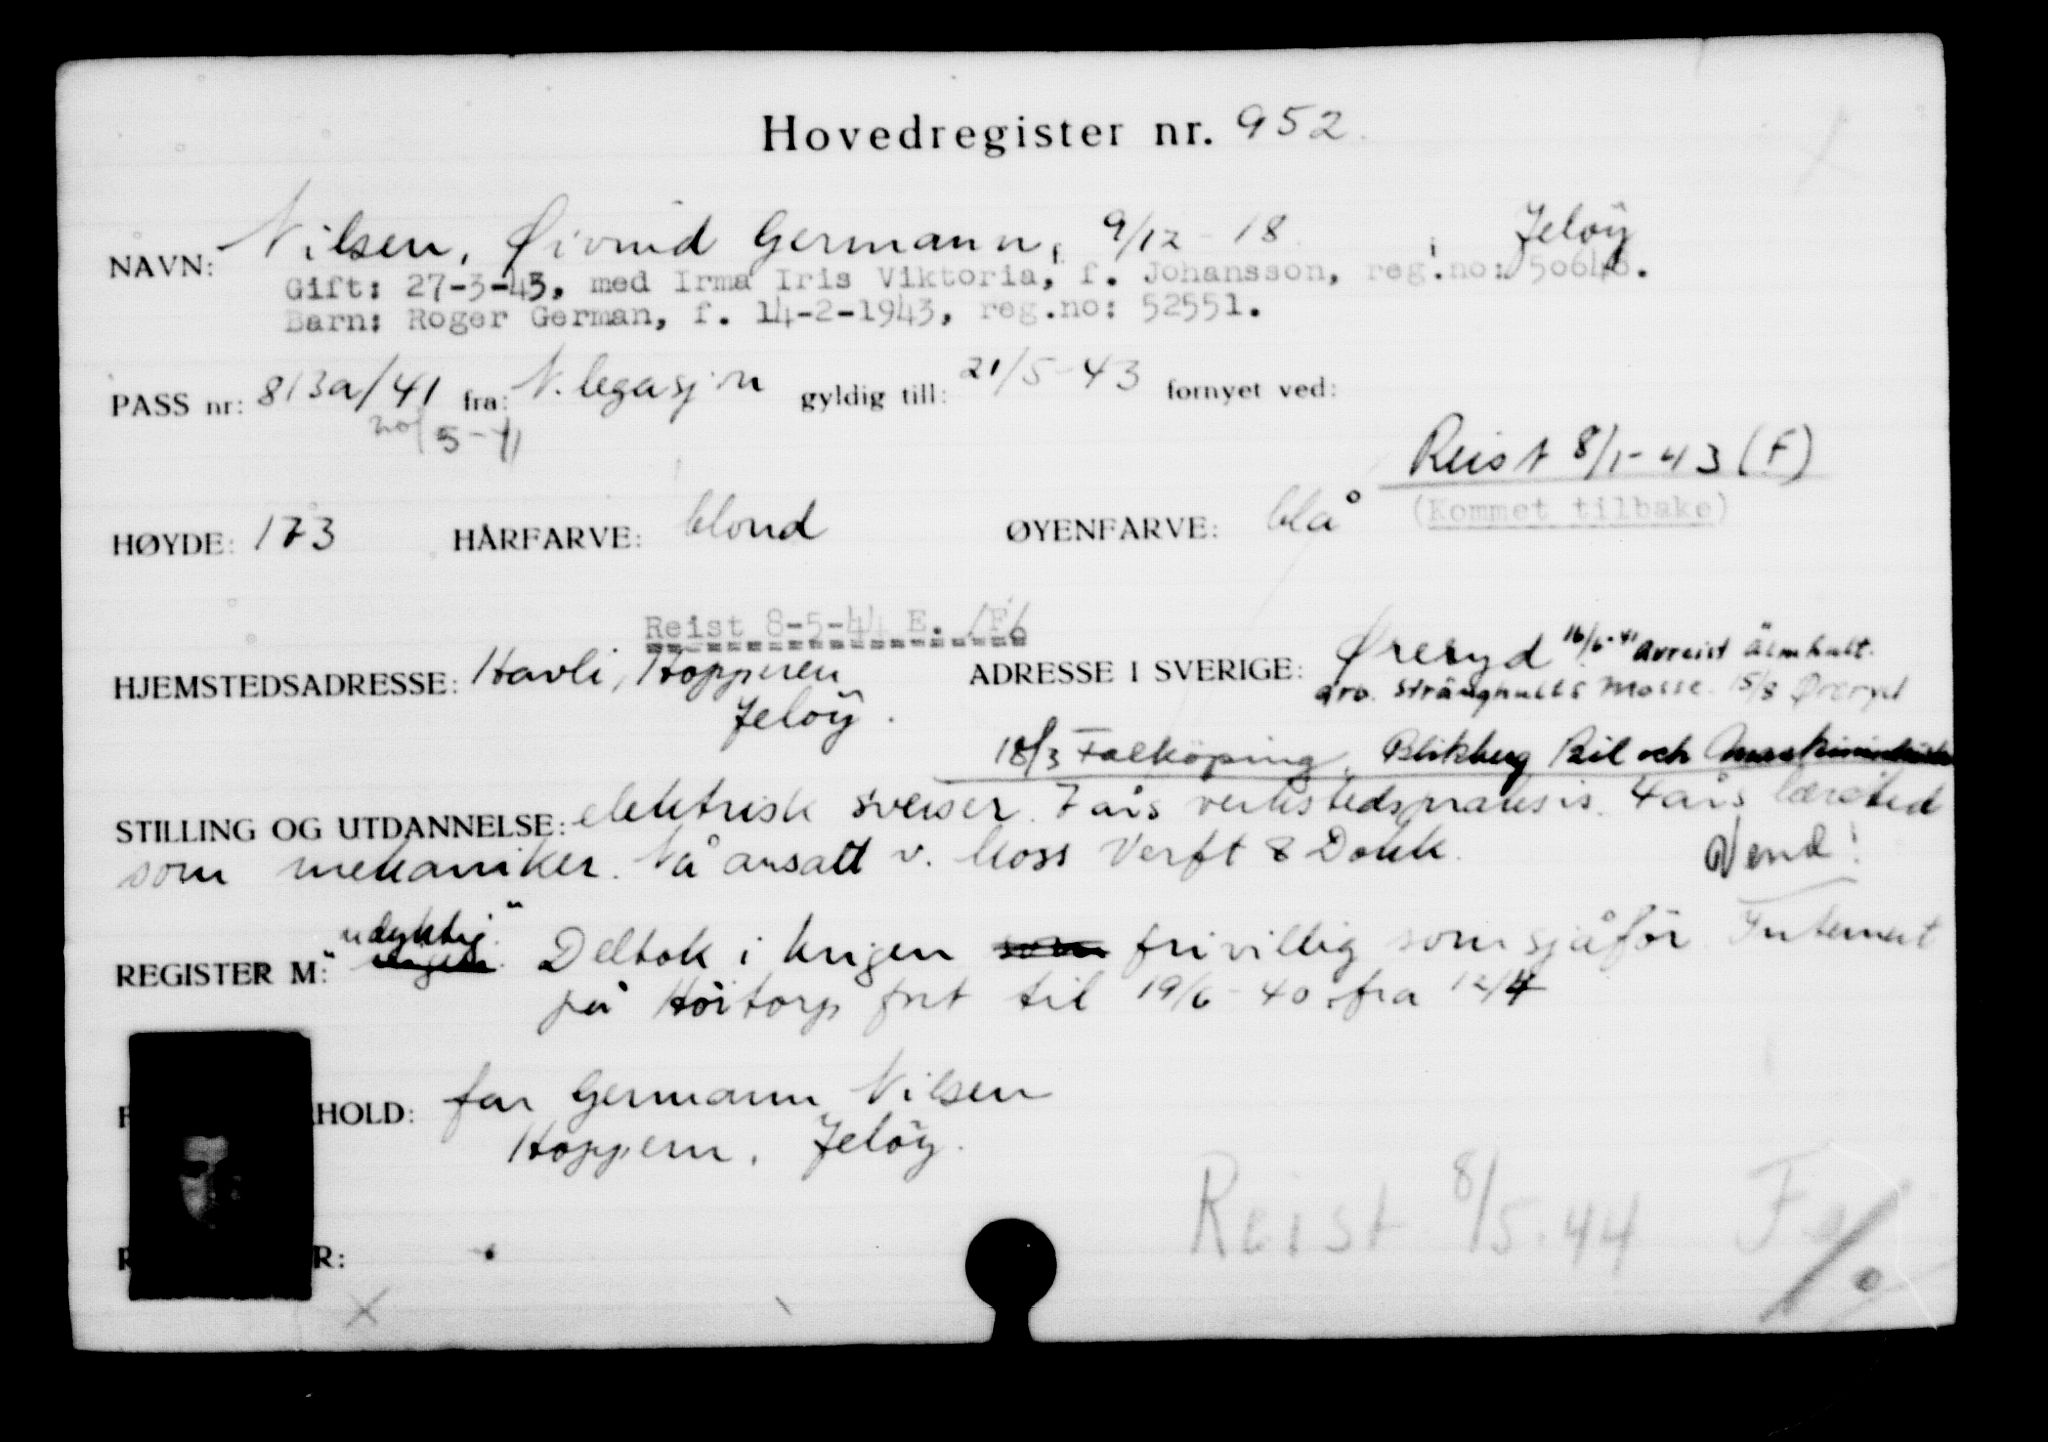 Hovedregister nr. 952.
NAVN: Nilsen, Øivind Germann, 9/12-18 i Jeløy
Gift: 27-3-43, med Irma Iris Viktoria, f. Johansson, reg.no: 50648.
Barn: Roger German, f. 14-2-1943, reg.no: 52551.
PASS nr: 813a/41 fra: N. legasjon gyldig till: 21/5-43 fornyet ved:
20/5-41
Reist 8/1-43 (F)
(Kommet tilbake)
HØYDE: 173 HÅRFARVE: blond ØYENFARVE: blå
Reist 8-5-44 E. /F/.
HJEMSTEDSADRESSE: Havli, Hoppern Jeløy. ADRESSE I SVERIGE: Øreryd 16/6-41 avreist Älmhult.
arb. Stränghults Mosse. 15/8 Øreryd
18/3 Falköping, Blikberg Bil och
STILLING OG UTDANNELSE: elektrisk sveiser. 7 års verkstedspraksis. 4 års læretid
som mekaniker. Nå ansatt v. Moss Verft & Dokk. Vend!
REGISTER M: "udyktig." Deltok i krigen som frivillig som sjåför Internert
på Höitorp fort til 19/6-40 fra 12/4
HOLD: far Germann Nilsen
Hoppern, Jeløy.
Reist 8/5.44
R: